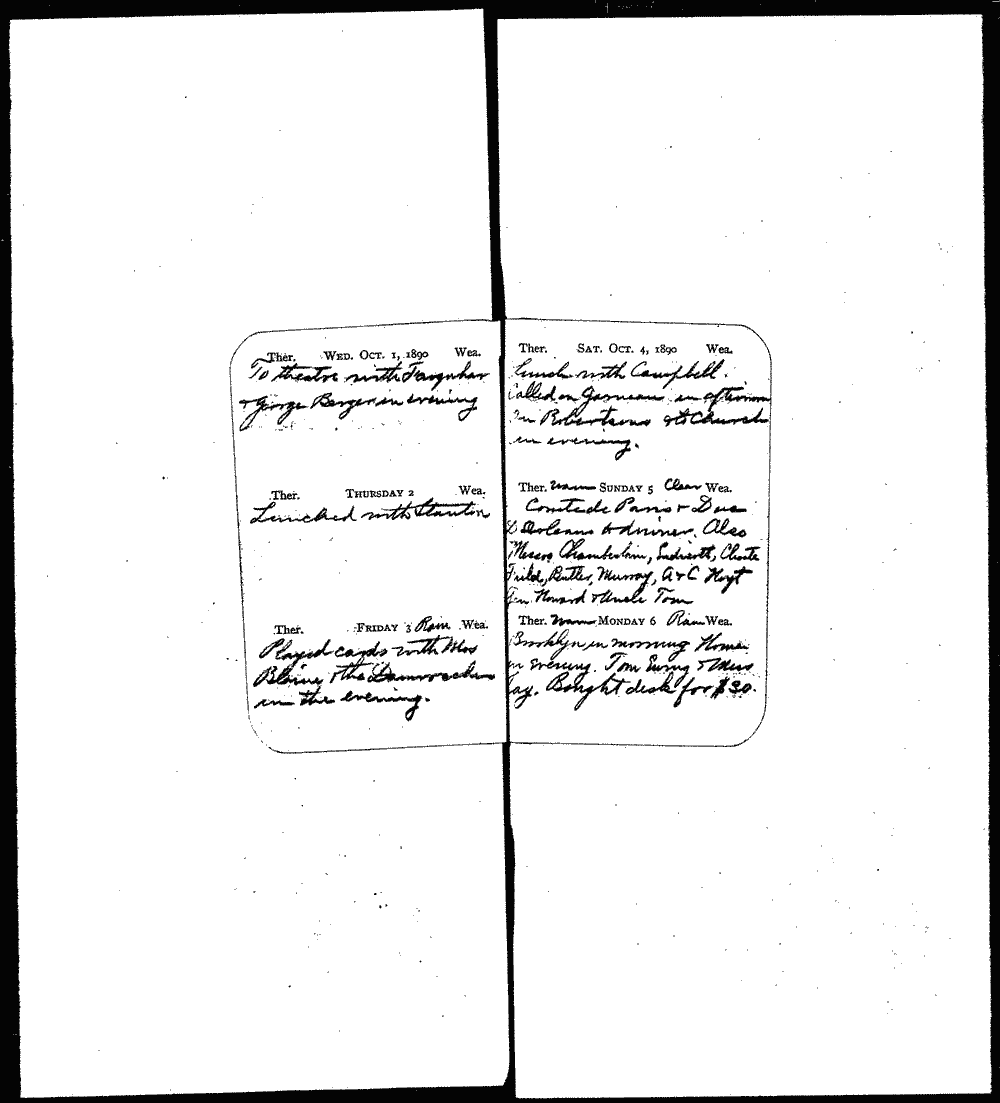 Ther. WED. OCT. 1, 1890 Wea.
To theatre with Farquhar
+ George Berger in evening
Ther. THURSDAY 2 Wea.
Lunched with Stanton
Ther. FRIDAY 3 Rain Wea.
Played cards with Miss
Blaine & the Damrosches
in the evening.
Ther. SAT. OCT. 4, 1890 Wea.
Lunch with Campbell.
Called on in afternoon
Robertsons & to Church
in evening.
Ther. Warm SUNDAY 5 Clear Wea.
Comte de Paris + Duc
D Orleans to dinner. Also
Messrs Chamberlain, Choate
Field, Butler, Murray, A + C Hoyt
Gen Howard & Uncle Tom
Ther. Warm MONDAY 6 Rain Wea.
Brooklyn in morning Home
in evening. Tom Ewing & Miss
Jay. Bought desk for $30.